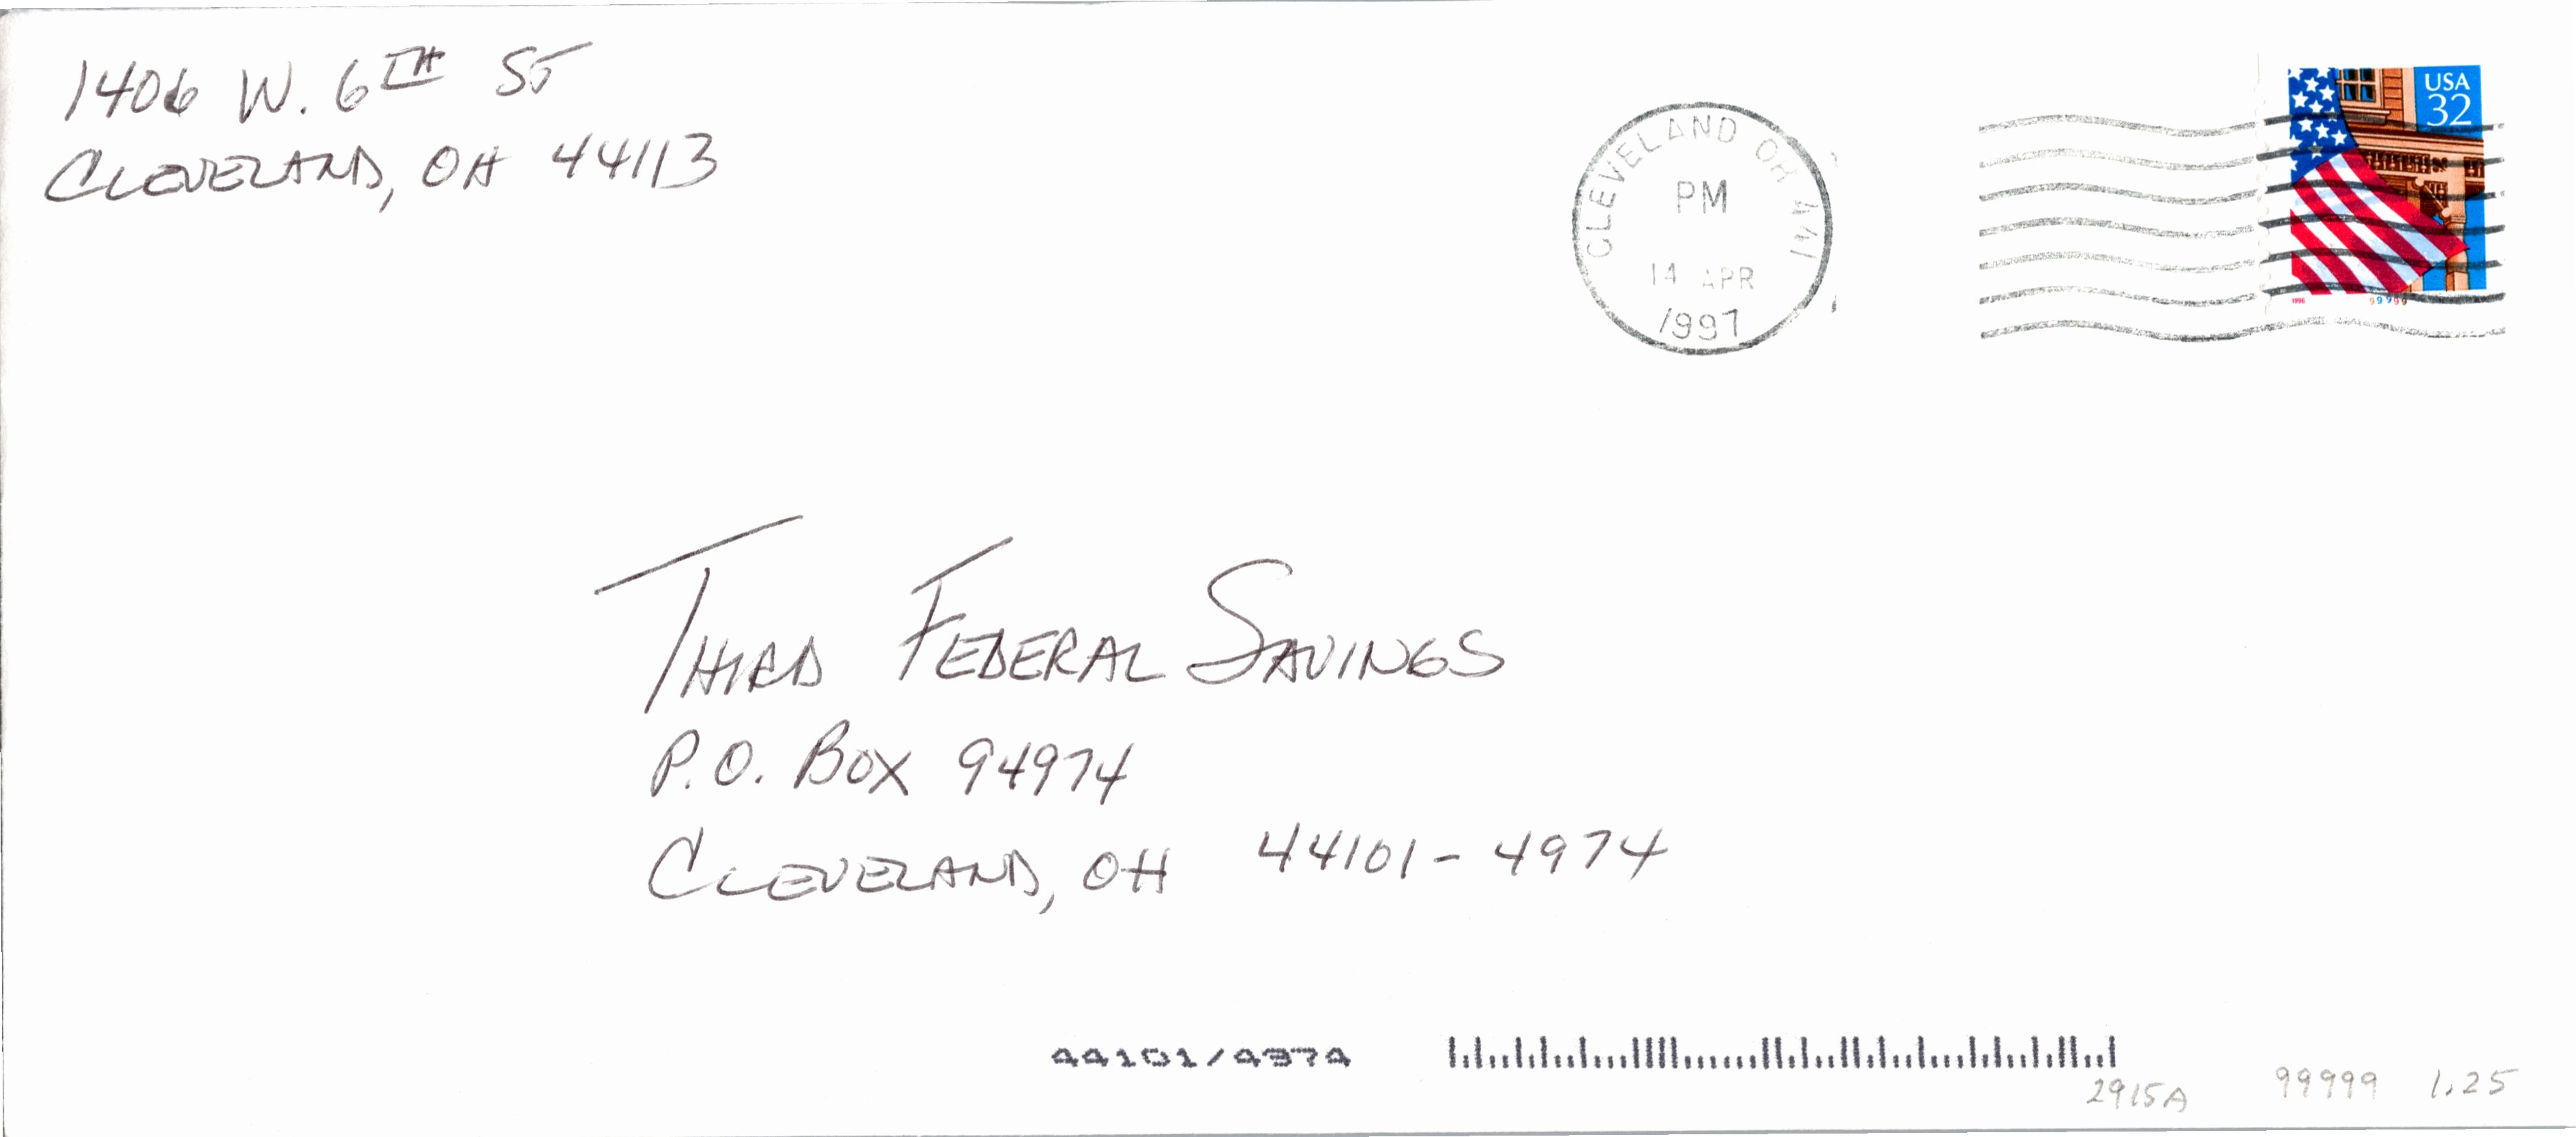 1406 W. 6TH ST
CLEVELAND, OH 44113
CLEVELAND OH 441
PM
14 APR
1997
USA
32
1996
99999
THIRD FEDERAL SAVINGS
P.O. BOX 94974
CLEVELAND, OH 44101-4974
44101/4974
2915A 99999 1.25